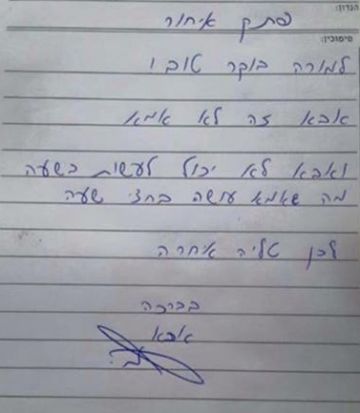 הנדון:
פתק איחור
סימוכין:
למורה בוקר טוב !
אבא זה לא אמא
ואבא לא יכול לעשות בשעה
מה שאמא עושה בחצי שעה
לכן טליה איחרה
בברכה
אבא